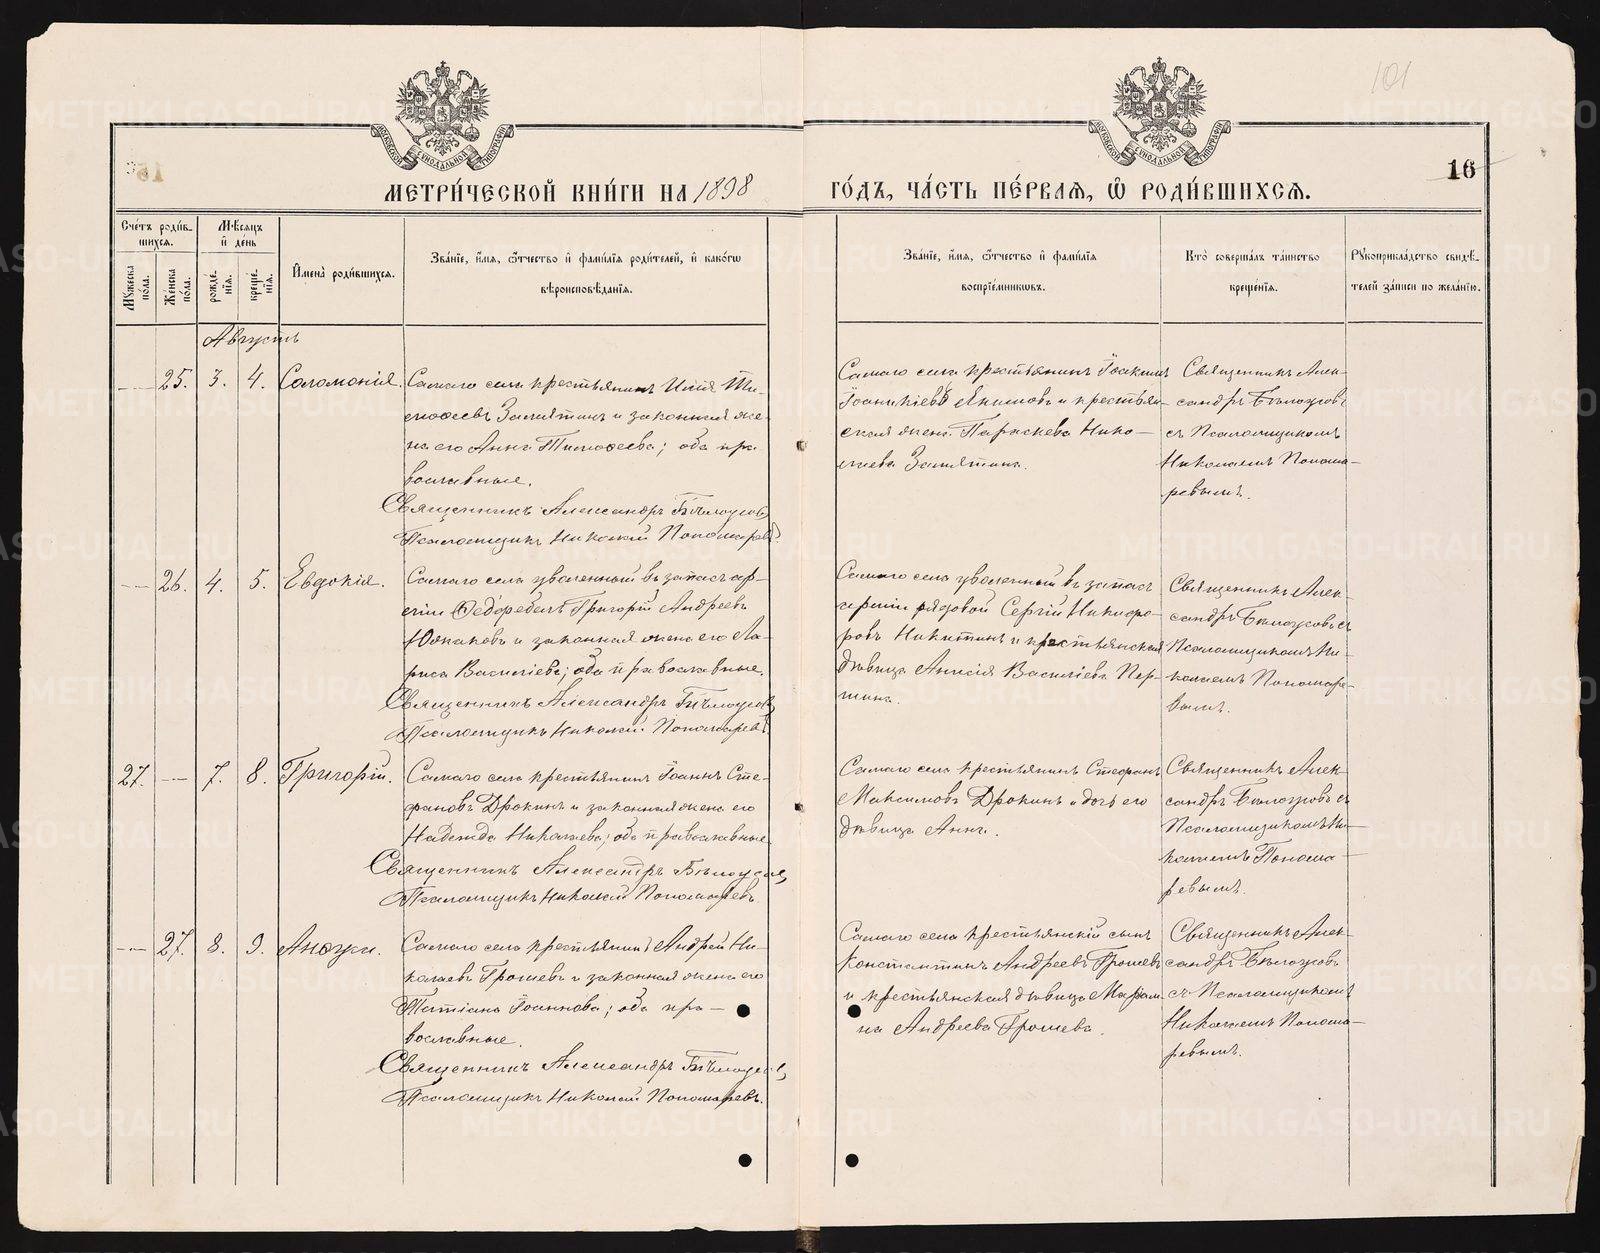 101
16
МЕТРИ́ЧЕСКОЙ КНИ́ГИ НА 1898
ГО́ДЪ, ЧА́СТЬ ПЕ́РВАѦ, Ѡ҆ РОДИ́ВШИХСѦ.
Сче́тъ роди́в-
шихсѧ.
Мꙋ́жеска по́ла.
Же́нска по́ла.
Мѣ́сѧцъ и҆ де́нь
рожде́нїѧ.
креще́нїѧ.
И҆мена̀ роди́вшихсѧ.
Зва́нїе, и҆́мѧ, ѻ҆́тчество и҆ фами́лїѧ роди́телей, и҆ како́гѡ
вѣроисповѣ́данїѧ.
Зва́нїе, и҆́мѧ, ѻ҆́тчество и҆ фами́лїѧ
воспрїе́мникѡвъ.
Кто̀ соверша́лъ та́инство
креще́нїѧ.
Рꙋкоприкла́дство свидѣ́-
телей за́писи по жела́нїю.
Августъ
25. 3. 4. Соломонія.
Самаго села крестьянинъ Илія Ти-
моѳеевъ Замятинъ и законная же-
на его Анна Тимоѳеева; оба пра
вославные.
Священникъ Александръ Бѣлоусовъ
Псаломщикъ Николай Пономаревъ.
Самаго села крестьянинъ Іоакимъ
Іоанникіевъ Якимовъ и крестьян-
ская жена Параскева Нико-
лаева Замятина.
Священникъ Алек-
сандръ Бѣлоусовъ
съ Псаломщикомъ
Николаемъ Понома-
ревымъ.
26. 4. 5. Евдокія.
Самаго села уволенный въ запасъ ар-
міи Григорій Андреевъ
и законная жена его Ла-
риса Василіева; оба православные.
Священникъ Александръ Бѣлоусовъ
Псаломщикъ Николай Пономаревъ.
Самаго села уволенный въ запасъ
арміи рядовой Сергій Никифо-
ровъ Никитинъ и крестьянская
дѣвица Анисія Василіева Пер-
шина.
Священникъ Алек-
сандръ Бѣлоусовъ съ
Псаломщикомъ Ни-
колаемъ Пономаре-
вымъ.
27. 7. 8. Григорій.
Самаго села крестьянинъ Іоаннъ Сте-
фановъ Дрокинъ и законная жена его
Надежда Николаева; оба православные
Священникъ Александръ Бѣлоусовъ
Псаломщикъ Николай Пономаревъ.
Самаго села крестьянинъ Стефанъ
Максимовъ Дрокинъ и дочь его
дѣвица Анна.
Священникъ Алек-
сандръ Бѣлоусовъ съ
Псаломщикомъ Ни-
колаемъ Понома-
ревымъ.
27. 8. 9. Анѳуса.
Самаго села крестьянинъ Андрей Ни-
колаевъ Грошевъ и законная жена его
Татіана Іоаннова; оба пра-
вославные.
Священникъ Александръ Бѣлоусовъ
Псаломщикъ Николай Пономаревъ.
Самаго села крестьянскій сынъ
Константинъ Андреевъ Грошевъ
и крестьянская дѣвица Маріам-
на Андреева Грошева.
Священникъ Алек-
сандръ Бѣлоусовъ
съ Псаломщикомъ
Николаемъ Понома-
ревымъ.